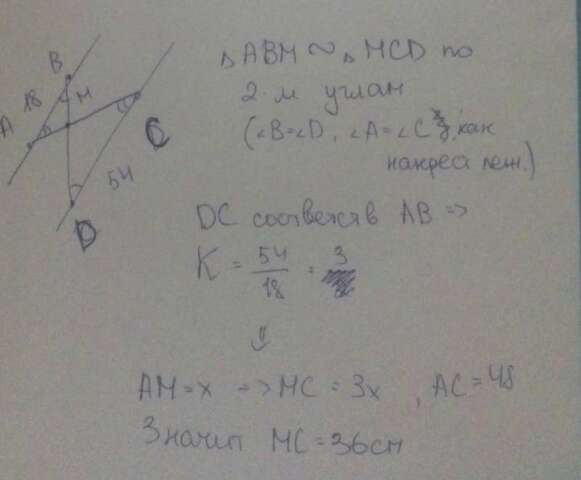 B
18
M
A
C
54
D
△ABM ∼ △MCD по
2-м углам
(∠B=∠D, ∠A=∠C, как
накрест леж.)
DC соответств AB =>
K = 54/18 = 3
⇓
AM=x => MC = 3x, AC=48
Значит MC=36см